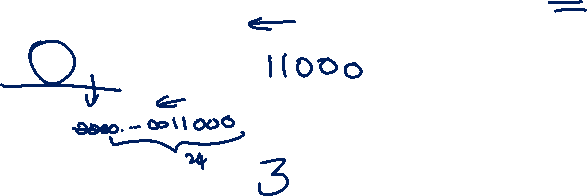 11000
0000.-0011000
24
3